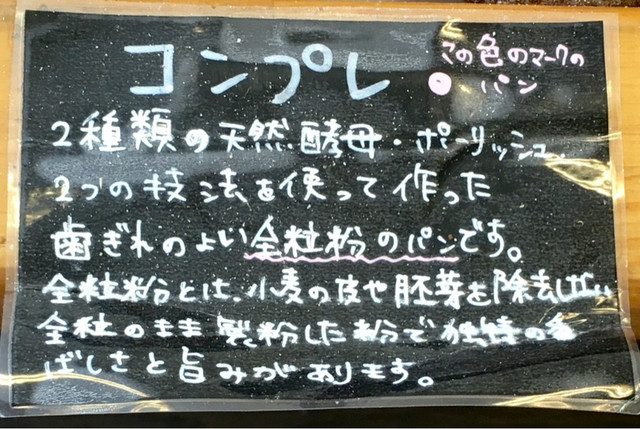 コンプレ
この色のマークの
パン
2種類の天然酵母・ポーリッシュ、
2つの技法を使って作った
歯ぎれのよい全粒粉のパンです。
全粒粉とは、小麦の皮や胚芽を除去しない
全粒のまま製粉した粉で独特の香
ばしさと旨みがあります。